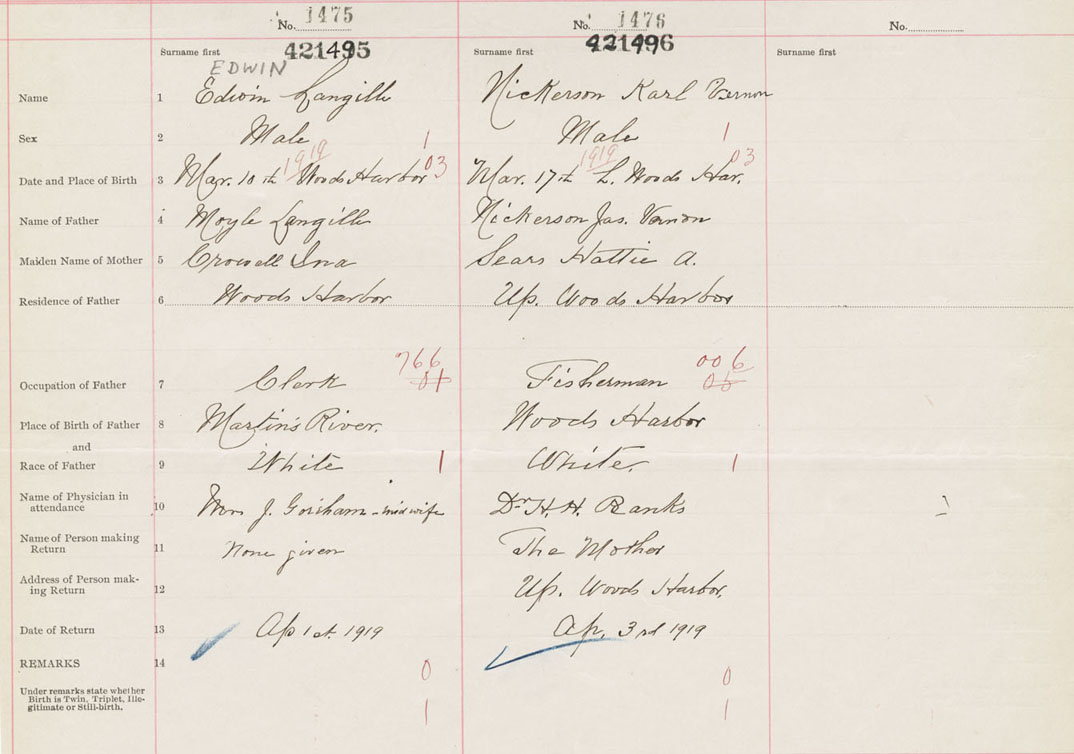 No. 1475
No. 1476
No.
Surname first 421495
Surname first 421496
Surname first
EDWIN
Name 1 Edwin Langille Nickerson Karl Vernon
Sex 2 Male 1 Male 1
1919 03 1919 03
Date and Place of Birth 3 Mar. 10th Woods Harbor Mar. 17th L. Woods Har.
Name of Father 4 Moyle Langille Nickerson Jas. Vernon
Maiden Name of Mother 5 Crowell Ina Sears Hattie A.
Residence of Father 6 Woods Harbor Up. Woods Harbor
766 006
Occupation of Father 7 Clerk 01 Fisherman 05
Place of Birth of Father 8 Martin's River. Woods Harbor
and
Race of Father 9 White 1 White. 1
Name of Physician in
attendance 10 Mrs J. Gorham - midwife Dr H. H. Banks
Name of Person making
Return 11 None given The Mother
Address of Person mak-
ing Return 12 Up. Woods Harbor.
Date of Return 13 Ap 1st. 1919 Ap. 3rd 1919
REMARKS 14
0 0
Under remarks state whether
Birth is Twin, Triplet, Ille-
gitimate or Still-birth.
1 1